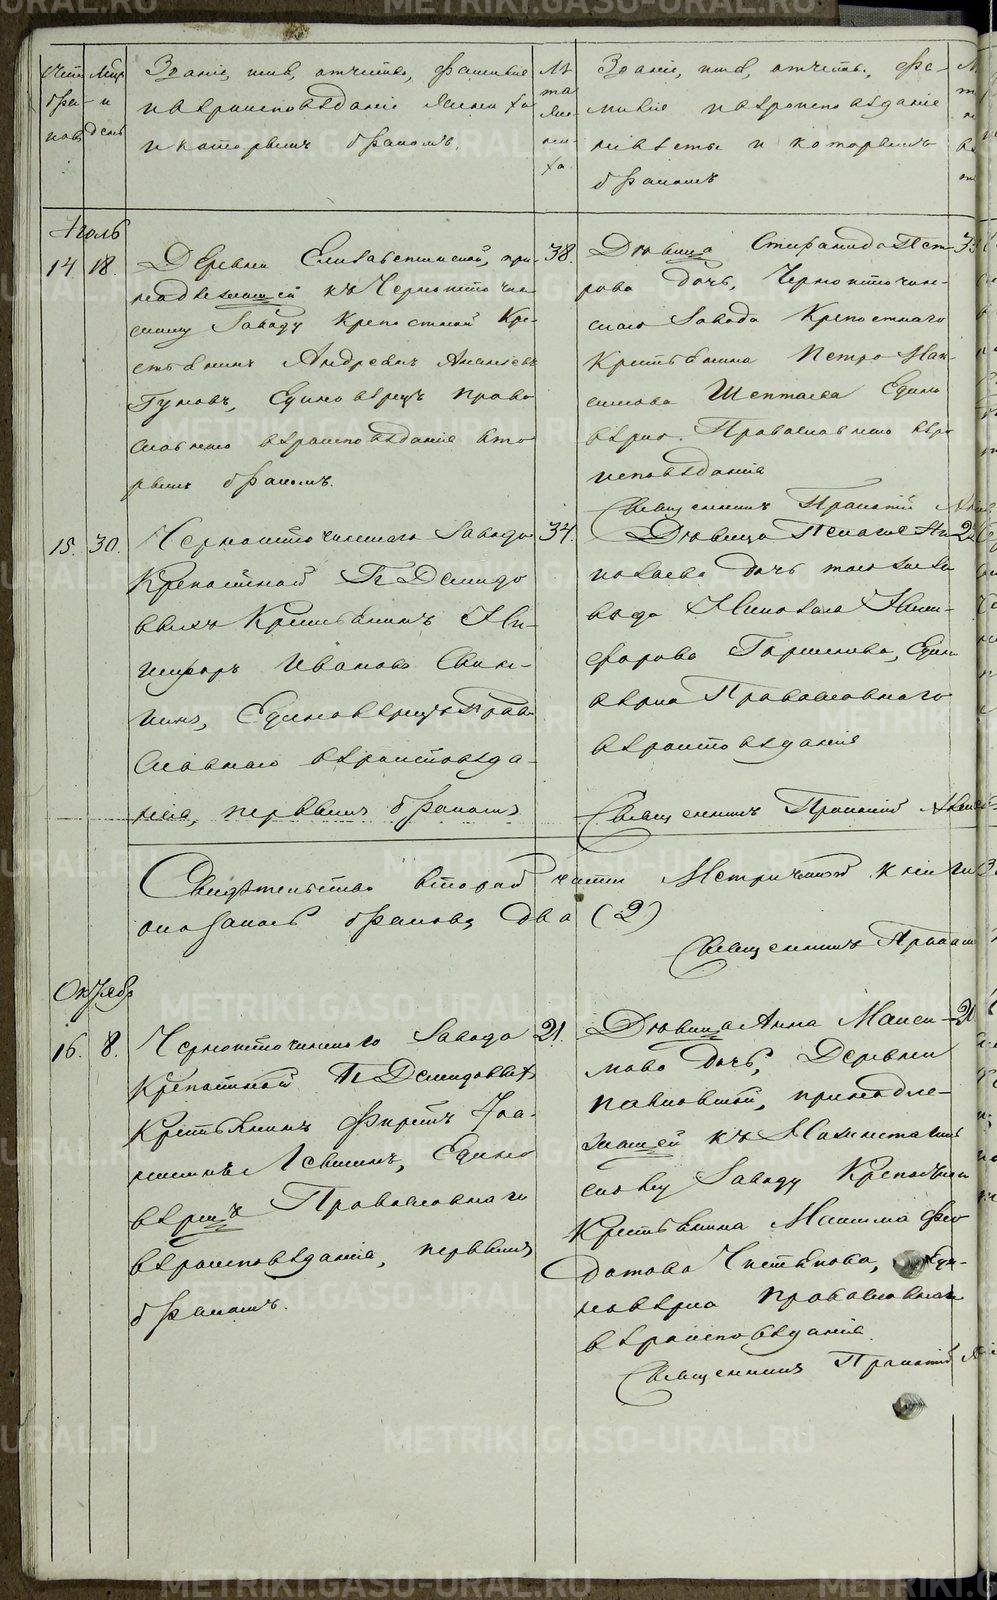 Счетъ браковъ
Мѣр. и день
Званіе, имя, отчество, фамилія
и вѣроисповѣданіе жениха
и которымъ бракомъ.
Лѣта жениха
Званіе, имя, отчеств., фа-
миліе и вѣроисповѣданіе
невѣсты и которымъ
бракомъ
Іюль
14 18.
Деревни Елизаветинской, при-
надлежащей къ Черноисточин-
скому Заводу Крепостной Кре-
стьянинъ Андреянъ Ананіевъ
Гуновъ, Единовѣрецъ Право
славнаго вѣроисповѣданія вто-
рымъ бракомъ.
38.
Дѣвица Стефанида Пет-
рова дочь, Черноисточин-
скаго Завода Крепостнаго
Крестьянина Петра Мак-
симова Шептаева Едино
вѣрка Православнаго вѣро
исповѣданія
Священникъ Прокопій
15. 30.
Черноисточинскаго Завода
Крепостной Гг Демидо
выхъ Крестьянинъ Ни-
кифоръ Ивановъ Свини-
нинъ, Единовѣрецъ Право
славнаго вѣроисповѣда-
нія, первымъ бракомъ
34.
Дѣвица Пелагея Ни
колаева дочь того же за
вода Николая Ники-
форова Горшкова, Едино
вѣрка Православнаго
вѣроисповѣданія
Священникъ Прокопій
Свидѣтельство второй части Метрической книги
оказалось браковъ два (2)
Священникъ Прокоп
Октябрь
16. 8.
Черноисточинскаго Завода
Крепостной Гг Демидовыхъ
Крестьянинъ Фирсъ Іоа-
кимовъ Левшинъ, Едино
вѣрецъ Православнаго
вѣроисповѣданія, первымъ
бракомъ.
21.
Дѣвица Анна Макси-
мова дочь, Деревни
Павловской, принадле-
жащей къ
скому Заводу Крепостнаго
Крестьянина Максима Фео
дотова Чистякова, Еди-
новѣрка православнаго
вѣроисповѣданія.
Священникъ Прокопій
METRIKI.GASO-URAL.RU